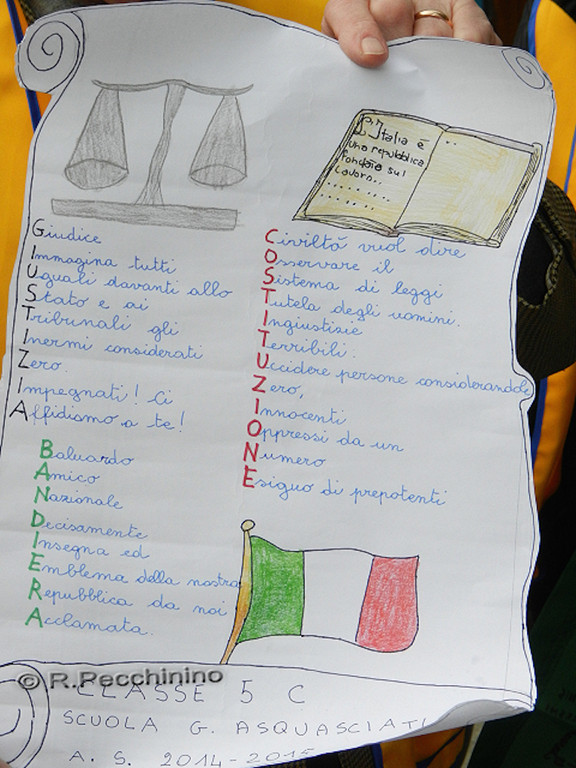 L'Italia è
una repubblica
fondata sul
lavoro...
Giudice
Immagina tutti
Uguali davanti allo
Stato e ai
Tribunali gli
Inermi considerati
Zero.
Impegnati! Ci
Affidiamo a te!
Civiltà vuol dire
Osservare il
Sistema di leggi
Tutela degli uomini.
Ingiustizie
Terribili.
Uccidere persone considerandole
Zero,
Innocenti
Oppressi da un
Numero
Esiguo di prepotenti
Baluardo
Amico
Nazionale
Decisamente
Insegna ed
Emblema della nostra
Repubblica da noi
Acclamata.
© R.Pecchinino
CLASSE 5 C
SCUOLA G. ASQUASCIATI
A. S. 2014-2015